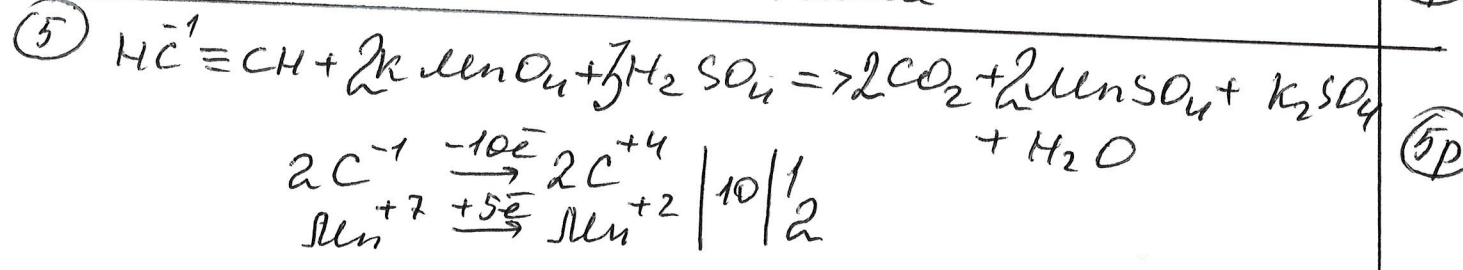 ⑤ HC⁻¹≡CH + 2KMnO₄ + 3H₂SO₄ => 2CO₂ + 2MnSO₄ + K₂SO₄
+ H₂O
5р
2C⁻¹ —(-10ē)→ 2C⁺⁴ | 10 | 1
Mn⁺⁷ —(+5ē)→ Mn⁺² | | 2